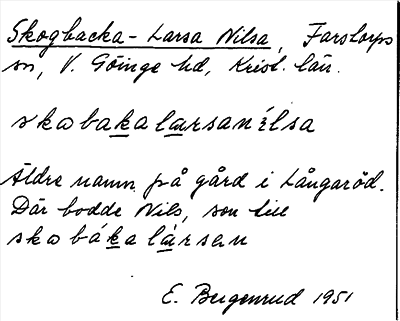 Skogbacka-Larsa Nilsa, Farstorps
sn, V. Göinge hd, Krist. län.
skobakalarsanílsa
Äldre namn på gård i Långaröd.
Där bodde Nils, son till
skobákalársan
E. Bugenrud 1951